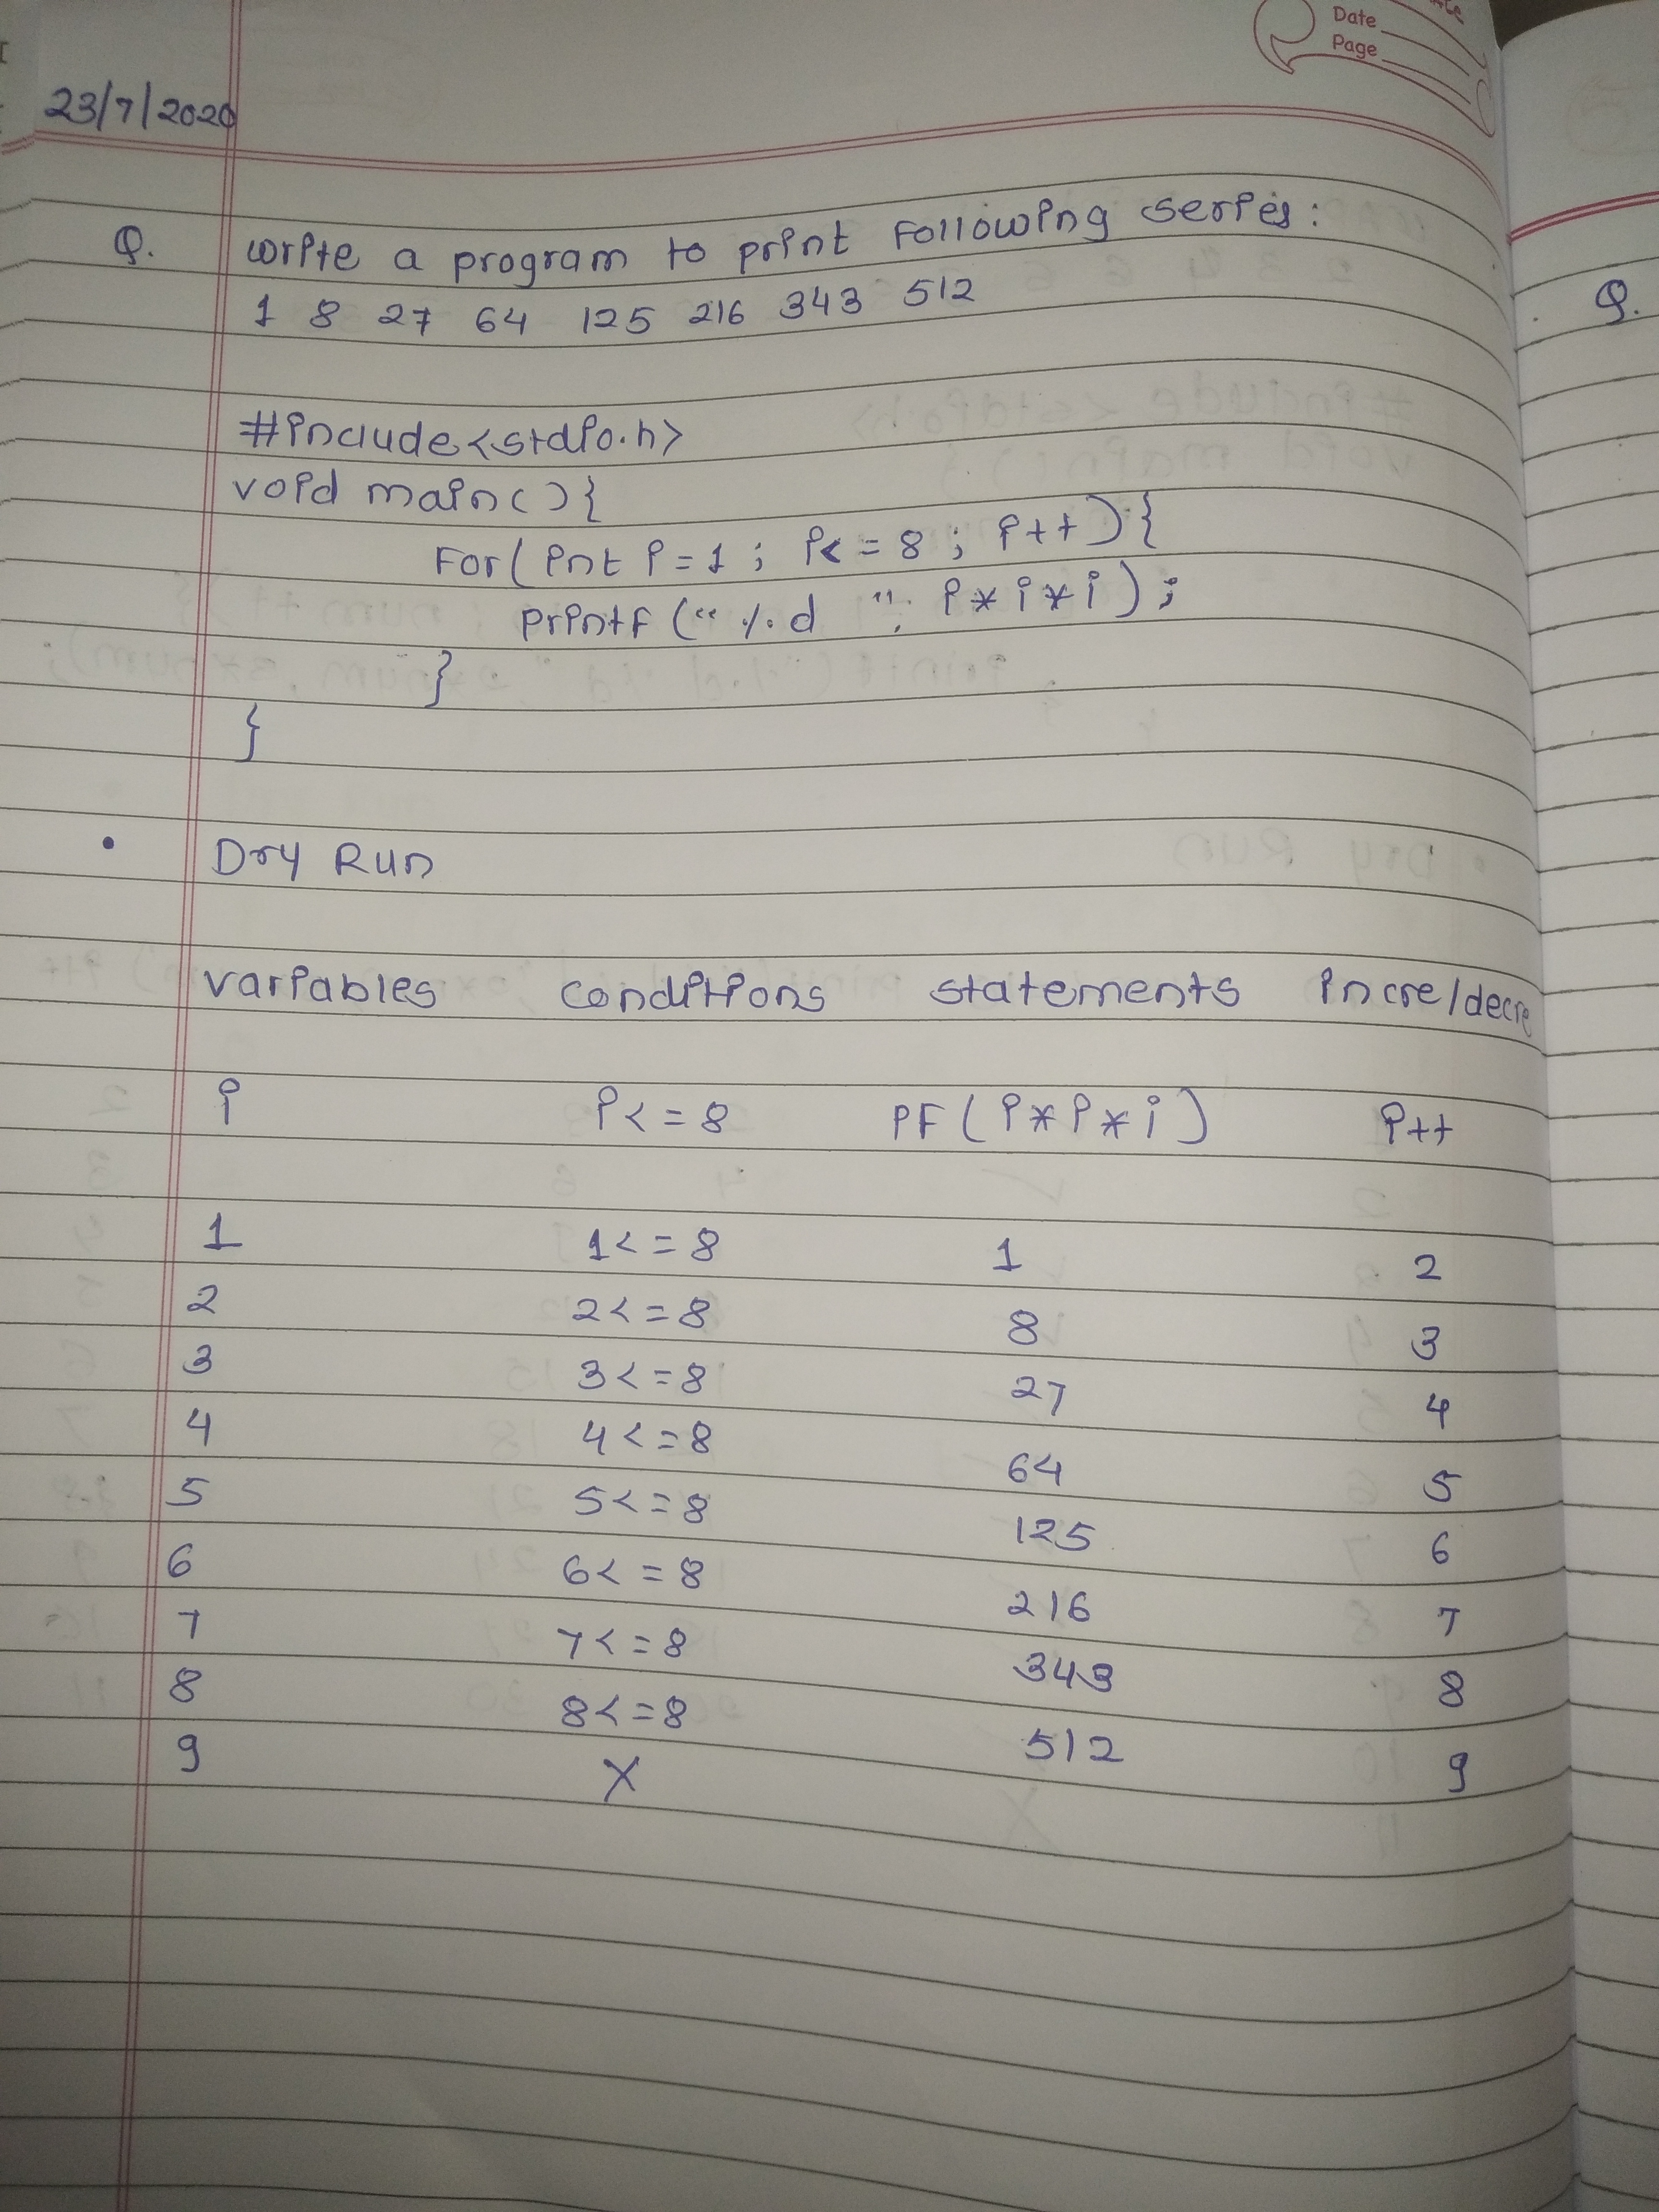 Date
Page
23/7/2020
Q. write a program to print following series:
1 8 27 64 125 216 343 512
Q.
#include<stdio.h>
void main(){
For(int i=1; i<=8; i++){
printf("%d ", i*i*i);
}
}
• Dry Run
variables conditions statements incre/decre
i i<=8 PF(i*i*i) i++
1 1<=8 1 2
2 2<=8 8 3
3 3<=8 27 4
4 4<=8 64 5
5 5<=8 125 6
6 6<=8 216 7
7 7<=8 343 8
8 8<=8 512 9
9 X